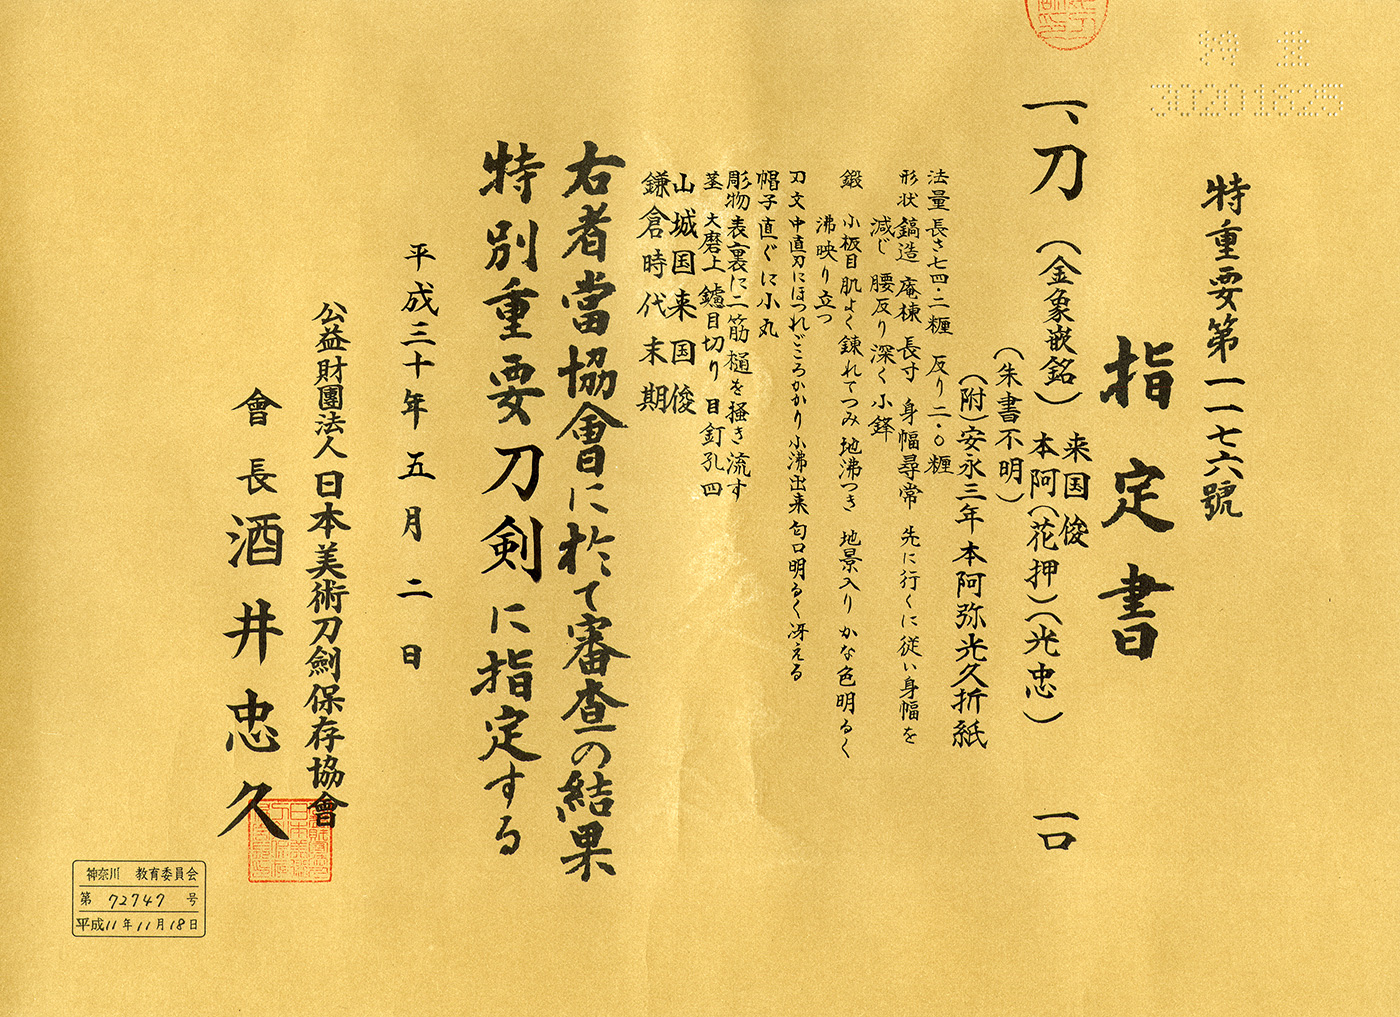 特重
30201625
特重要第一一七六號
指定書
一、刀（金象嵌銘）来国俊
本阿（花押）（光忠）
一口
（朱書不明）
（附）安永三年本阿弥光久折紙
法量 長さ七四・二糎 反り二・〇糎
形状 鎬造 庵棟 長寸 身幅尋常 先に行くに従い身幅を
減じ 腰反り深く小鋒
鍛 小板目肌よく錬れてつみ 地沸つき 地景入り かな色明るく
沸映り立つ
刃文 中直刃にほつれごころかかり 小沸出来 匂口明るく冴える
帽子 直ぐに小丸
彫物 表裏に二筋樋を掻き流す
茎 大磨上 鑢目切り 目釘孔四
山城国来国俊
鎌倉時代末期
右者當協會に於て審査の結果
特別重要刀剣に指定する
平成三十年五月二日
公益財團法人日本美術刀劍保存協會
會長酒井忠久
神奈川 教育委員会
第 72747 号
平成11年11月18日